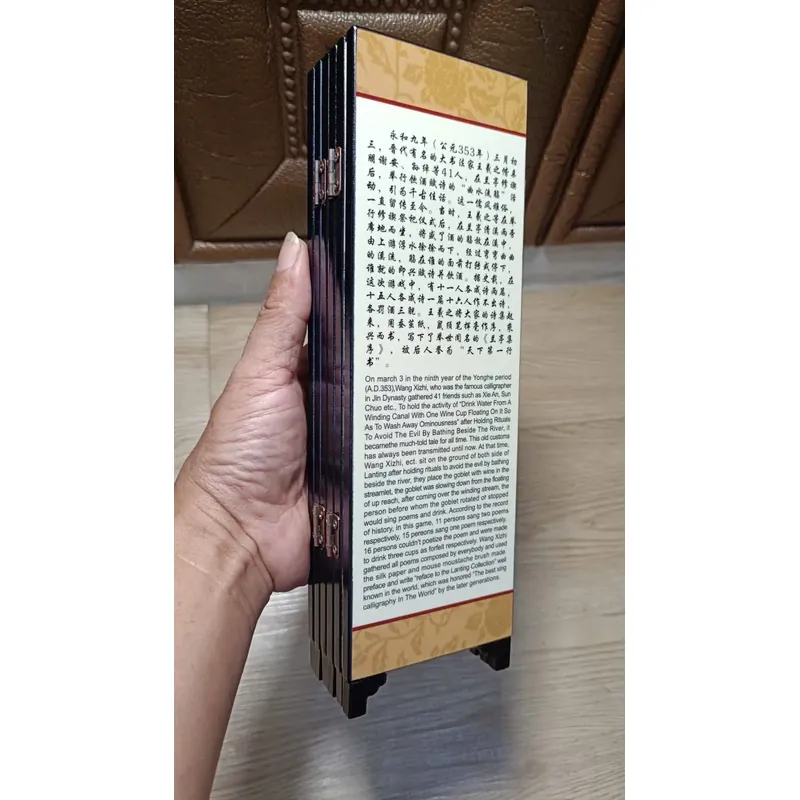 永和九年(公元353年)三月初
三,晋代有名的大书法家王羲之偕亲
朋谢安、孙绰等41人,在兰亭修禊
后,举行饮酒赋诗的“曲水流觞”活
动,引为千古佳话。这一儒风雅俗,
一直留传至今。当时,王羲之等在举
行修禊祭祀仪式后,在兰亭清溪两旁
席地而坐,将盛了酒的觞放在溪中,
由上游浮水徐徐而下,经过弯弯曲曲
的溪流,觞在谁的面前打转或停下,
谁就的即兴赋诗并饮酒。据史载,在
这次游戏中,有十一人各成诗两篇,
十五人各成诗一篇十六人作不出诗,
各罚酒三觥。王羲之将大家的诗集起
来,用蚕茧纸,鼠须笔挥毫作序,乘
兴而书,写下了举世闻名的《兰亭集
序》,被后人誉为“天下第一行
书”。
On march 3 in the ninth year of the Yonghe period
(A.D.353),Wang Xizhi, who was the famous calligrapher
in Jin Dynasty gathered 41 friends such as Xie An, Sun
Chuo etc., To hold the activity of "Drink Water From A
Winding Canal With One Wine Cup Floating On It So
As To Wash Away Ominousness" after Holding Rituals
To Avoid The Evil By Bathing Beside The River, it
becamethe much-told tale for all time. This old customs
has always been transmitted until now. At that time,
Wang Xizhi, ect. sit on the ground of both side of
Lanting after holding rituals to avoid the evil by bathing
beside the river, they place the goblet with wine in the
streamlet, the goblet was slowing down from the floating
of up reach, after coming over the winding stream, the
person before whom the goblet rotated or stopped
would sing poems and drink. According to the record
of history, in this game, 11 persons sang two poems
respectively, 15 pereons sang one poem respectively.
16 persons couldn't poetize the poem and were made
to drink three cups as forfeit respectively. Wang Xizhi
gathered all poems composed by everybody and used
the silk paper and mouse moustache brush made
preface and write "reface to the Lanting Collection" well
known in the world, which was honored "The best xing
calligraphy In The World" by the later generations.